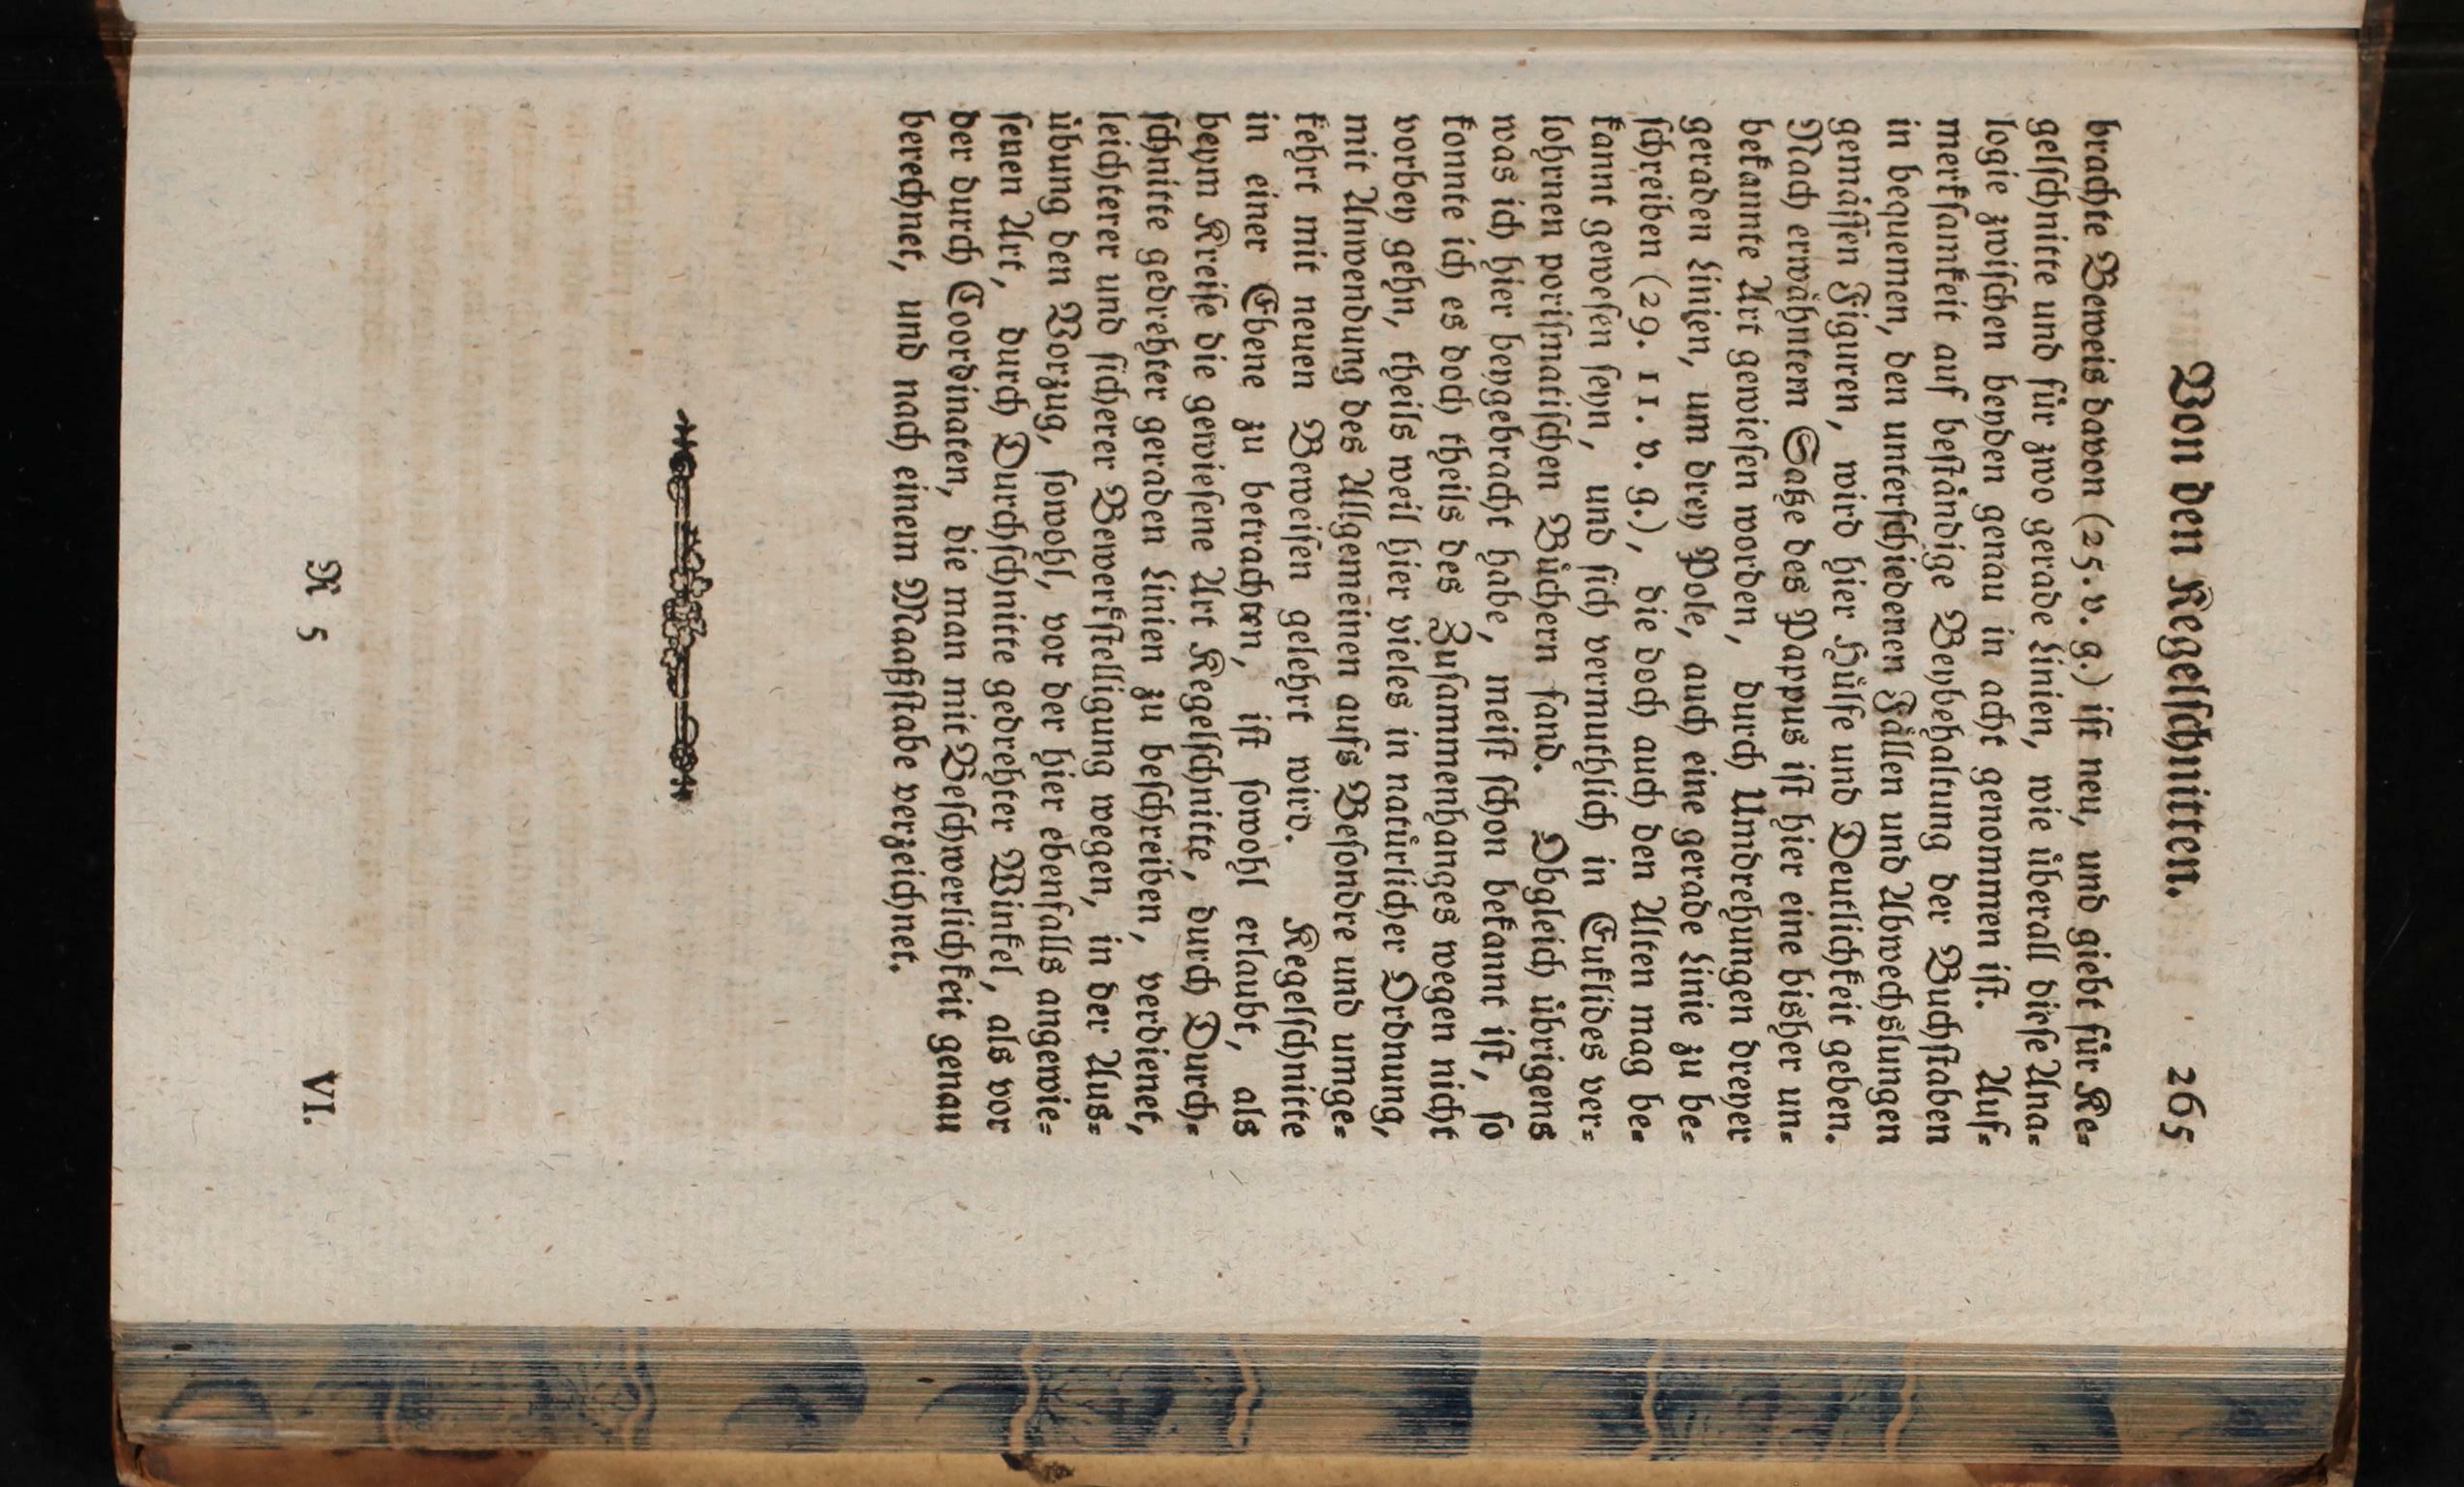 Von den Kegelschnitten. 265
brachte Beweis davon (25. v. g.) ist neu, und giebt für Ke-
gelschnitte und für zwo gerade Linien, wie überall diese Ana-
logie zwischen beyden genau in acht genommen ist. Auf-
merksamkeit auf beständige Beybehaltung der Buchstaben
in bequemen, den unterschiedenen Fällen und Abwechslungen
gemässen Figuren, wird hier Hülfe und Deutlichkeit geben.
Nach erwähntem Satze des Pappus ist hier eine bisher un-
bekannte Art gewiesen worden, durch Umdrehungen dreyer
geraden Linien, um drey Pole, auch eine gerade Linie zu be-
schreiben (29. 11. v. g.), die doch auch den Alten mag be-
kannt gewesen seyn, und sich vermuthlich in Euklides ver-
lohrnen porismatischen Büchern fand. Obgleich übrigens
was ich hier beygebracht habe, meist schon bekannt ist, so
konnte ich es doch theils des Zusammenhanges wegen nicht
vorbey gehn, theils weil hier vieles in natürlicher Ordnung,
mit Anwendung des Allgemeinen aufs Besondre und umge-
kehrt mit neuen Beweisen gelehrt wird. Kegelschnitte
in einer Ebene zu betrachten, ist sowohl erlaubt, als
beym Kreise die gewiesene Art Kegelschnitte, durch Durch-
schnitte gedrehter geraden Linien zu beschreiben, verdienet,
leichterer und sicherer Bewerkstelligung wegen, in der Aus-
übung den Vorzug, sowohl, vor der hier ebenfalls angewie-
senen Art, durch Durchschnitte gedrehter Winkel, als vor
der durch Coordinaten, die man mit Beschwerlichkeit genau
berechnet, und nach einem Maaßstabe verzeichnet.
R 5 VI.